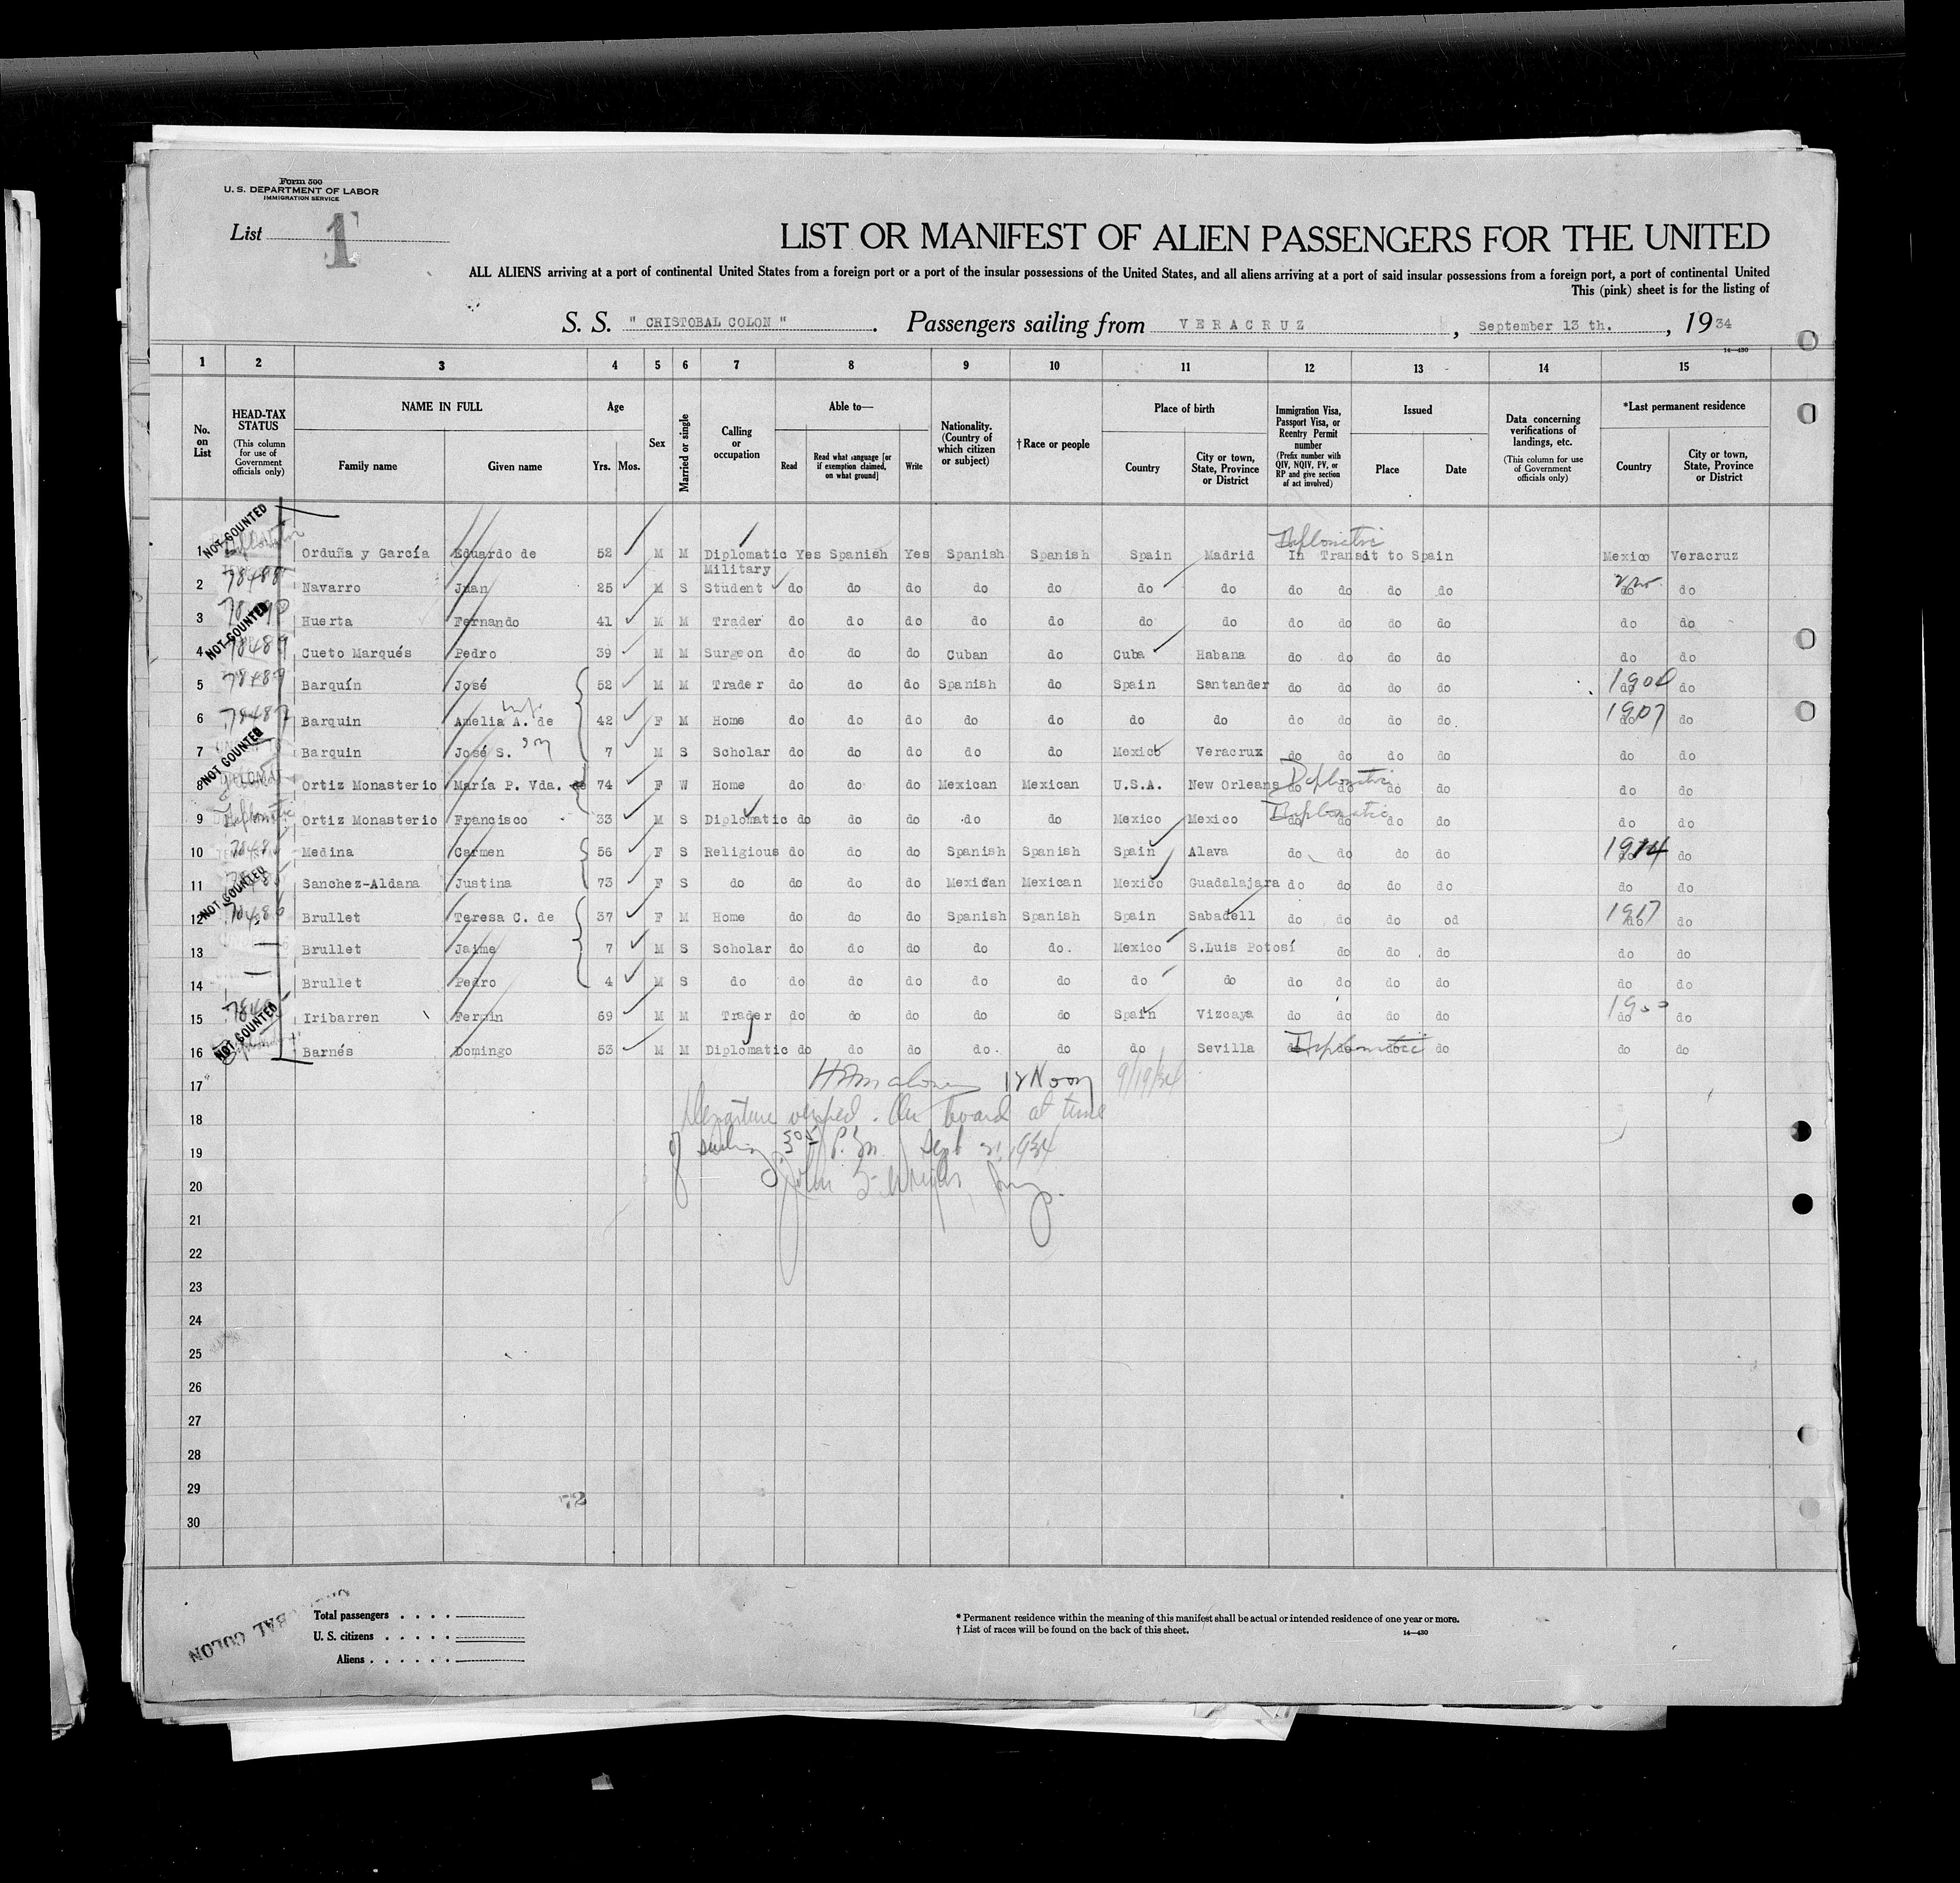 Form 500
U. S. DEPARTMENT OF LABOR
IMMIGRATION SERVICE
List 1
LIST OR MANIFEST OF ALIEN PASSENGERS FOR THE UNITED
ALL ALIENS arriving at a port of continental United States from a foreign port or a port of the insular possessions of the United States, and all aliens arriving at a port of said insular possessions from a foreign port, a port of continental United
This (pink) sheet is for the listing of
S. S. " CRISTOBAL COLON " . Passengers sailing from VERACRUZ , September 13 th. , 1934
14—430
1 2 3 4 5 6 7 8 9 10 11 12 13 14 15
No. on List
HEAD-TAX STATUS (This column for use of Government officials only)
NAME IN FULL
Family name Given name
Age
Yrs. Mos.
Sex
Married or single
Calling or occupation
Able to—
Read Read what language [or if exemption claimed, on what ground] Write
Nationality. (Country of which citizen or subject)
† Race or people
Place of birth
Country City or town, State, Province or District
Immigration Visa, Passport Visa, or Reentry Permit number (Prefix number with QIV, NQIV, PV, or RP and give section of act involved)
Issued
Place Date
Data concerning verifications of landings, etc. (This column for use of Government officials only)
*Last permanent residence
Country City or town, State, Province or District
NOT COUNTED
Diplomatic
1 Orduña y García Eduardo de 52 M M Diplomatic Yes Spanish Yes Spanish Spanish Spain Madrid In Transit to Spain Mexico Veracruz
Military
2 78488 Navarro Juan 25 M S Student do do do do do do do do do do do do do
3 Huerta Fernando 41 M M Trader do do do do do do do do do do do do do
NOT COUNTED
4 78489 Cueto Marqués Pedro 39 M M Surgeon do do do Cuban do Cuba Habana do do do do do do
5 78489 Barquín José 52 M M Trader do do do Spanish do Spain Santander do do do do 1904 do do
wife
6 78487 Barquin Amelia A. de 42 F M Home do do do do do do do do do do do 1907 do do
7 Barquin José S. son 7 M S Scholar do do do do do Mexico Veracrux do do do do do do
NOT COUNTED
8 Ortiz Monasterio María P. Vda. de 74 F W Home do do do Mexican Mexican U.S.A. New Orleans do do do do do do Diplomatic
9 Diplomatic Ortiz Monasterio Francisco 33 M S Diplomatic do do do do do Mexico Mexico do do do do do do Diplomatic
10 Medina Carmen 56 F S Religious do do do Spanish Spanish Spain Alava do do do do 1914 do do
NOT COUNTED
11 Sanchez-Aldana Justina 73 F S do do do do Mexican Mexican Mexico Guadalajara do do do do do do
12 78486 Brullet Teresa C. de 37 F M Home do do do Spanish Spanish Spain Sabadell do do do od 1917 do do
13 Brullet Jaime 7 M S Scholar do do do do do. Mexico S.Luis Potosí do do do do do
14 Brullet Pedro 4 M S do do do do do do do do do do do do do do
15 Iribarren Fermin 69 M M Trader do do do do do Spain Vizcaya do do do do do do
NOT COUNTED
16 Barnés Domingo 53 M M Diplomatic do do do do. do do Sevilla do do do do do do Diplomatic
17 12 Noon 9/19/34
18 Departure verified. On board at time
19 of sailing 305 P.M. Sept 21, 1934
20 John
21
22
23
24
25
26
27
28
29
30
72
CRISTOBAL COLON
Total passengers
U. S. citizens
Aliens
* Permanent residence within the meaning of this manifest shall be actual or intended residence of one year or more.
† List of races will be found on the back of this sheet.
14—430